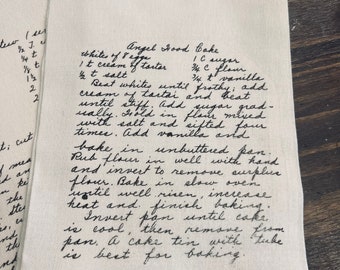 Angel Food Cake
Whites of 9 eggs 1 C sugar
1 t cream of tartar 3/4 C flour
1/2 t salt 3/4 t vanilla
Beat whites until frothy; add
cream of tartar and beat
until stiff. Add sugar grad-
ually. Fold in flour mixed
with salt and sifted four
times. Add vanilla and
bake in unbuttered pan.
Rub flour in well with hand
and invert to remove surplus
flour. Bake in slow oven
until well risen, increase
heat and finish baking.
Invert pan until cake
is cool, then remove from
pan. A cake tin with tube
is best for baking.